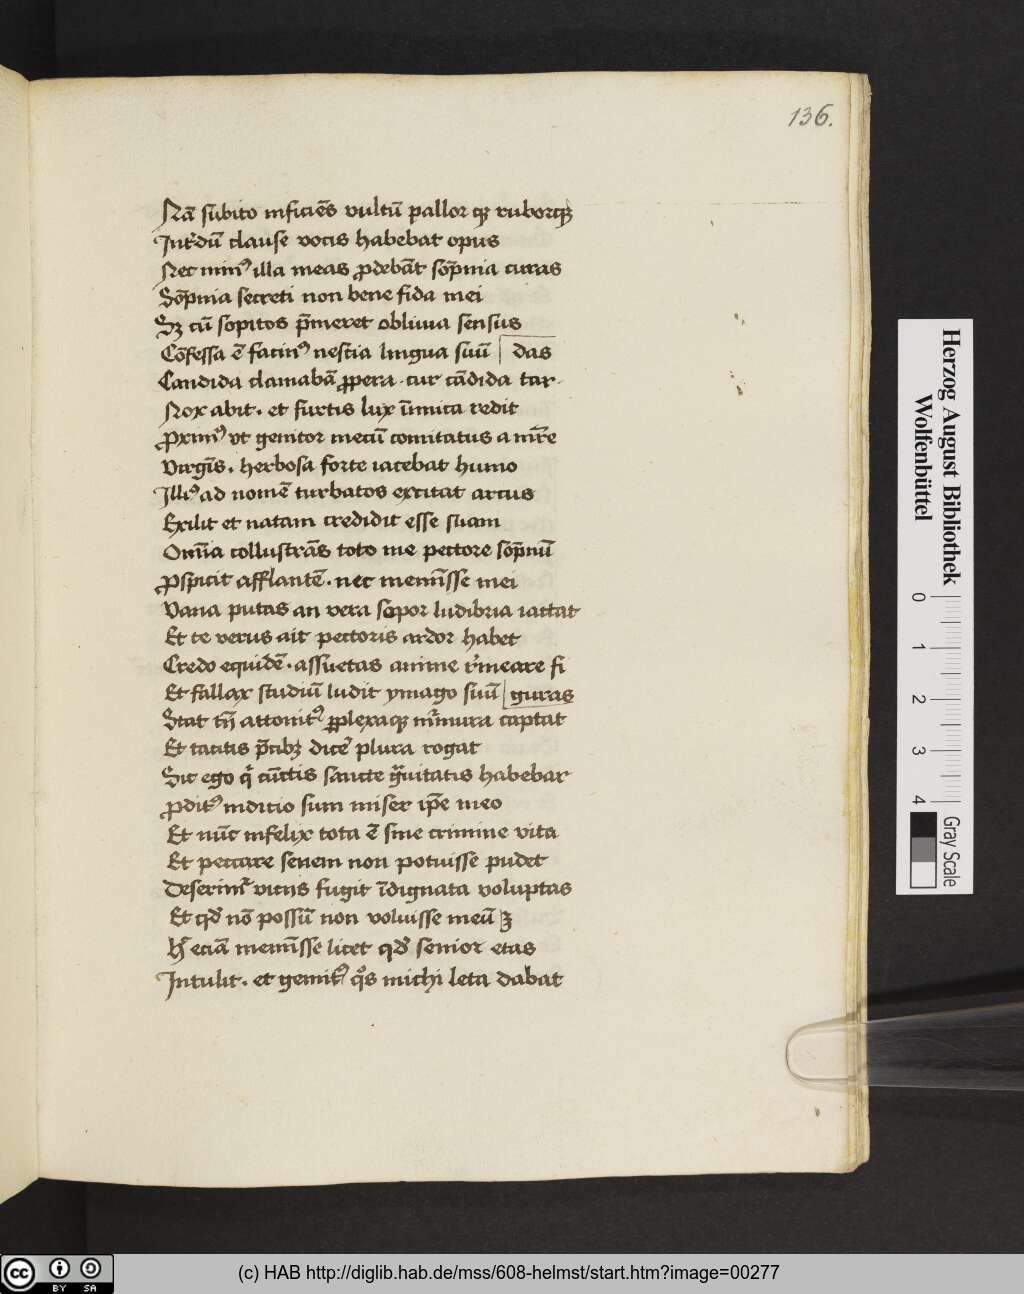 136.
Nā sūbito inficiēs vultū pallor qꝫ ruborqꝫ
Int'dū clause vocis habebat opus
Nec minꝰ illa meas ꝓdebāt sōpnia curas
Sōpnia secreti non bene fida mei
Sꝫ cū sopitos p̄meret obliuia sensus
Cōfessa ē facinꝰ nescia lingua suū das
Candida clamabā ꝓpera . cur cādida tar
Nox abit . et furtis lux īmica redit
ꝓximꝰ vt genitor mecū comitatus a mr̄e
Virgīs . herbosa forte iacebat humo
Illiꝰ ad nomē turbatos excitat artus
Exilit et natam credidit esse suam
Omīa collustrās toto me pectore sōpnū
ꝓspicit afflantē . nec memīsse mei
Vana putas an vera sopor ludibria iactat
Et te verus ait pectoris ardor habet
Credo equidē . assuetas anime r̄meare fi
Et fallax studiū ludit ymago suū guras
Stat tn̄ attonitꝰ ꝑplexaqꝫ mr̄mura captat
Et tacitis p̄cibꝫ dicē plura rogat
Sic ego q̄ cūctis sancte g̃uitatis habebar
ꝓditꝰ indicio sum miser ip̄e meo
Et nūc infelix tota ē sine crimine vita
Et peccare senem non potuisse pudet
Deserimꝰ vicijs fugit īdignata voluptas
Et qd' nō possū non voluisse meū ꝫ
H' eciā memīsse licet qd' senior etas
Intulit . et gemitꝰ q̊s michi leta dabat
Herzog August Bibliothek
Wolfenbüttel
0 1 2 3 4
Gray Scale
cc BY SA
(c) HAB http://diglib.hab.de/mss/608-helmst/start.htm?image=00277